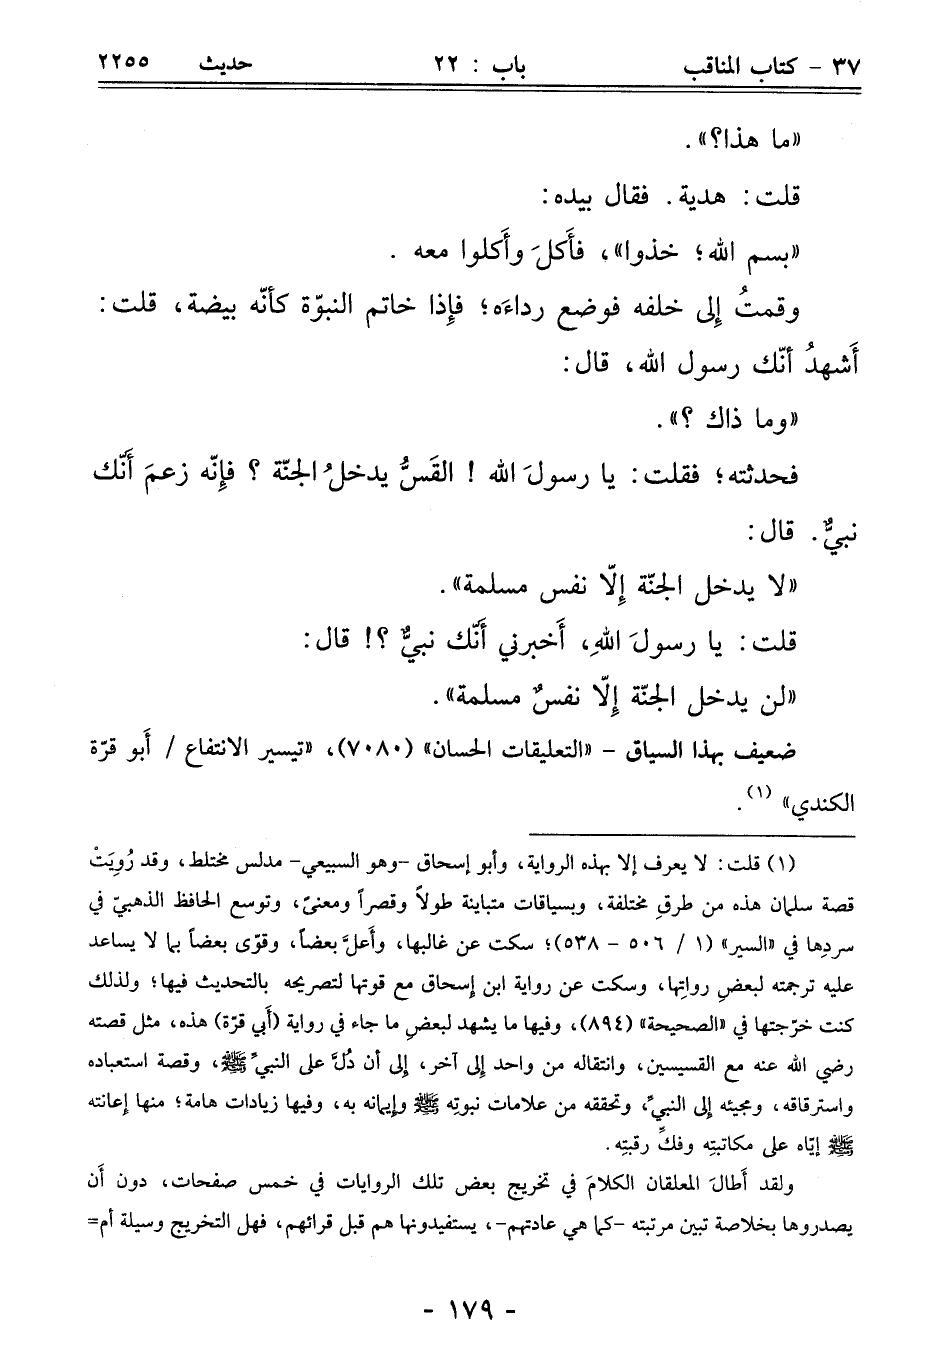 ٣٧ - كتاب المناقب باب : ٢٢ حديث ٢٢٥٥
«ما هذا؟» .
قلت : هدية . فقال بيده :
«بسم الله ؛ خذوا» ، فأَكلَ وأَكلوا معه .
وقمتُ إلى خلفه فوضع رداءَه؛ فإِذا خاتم النبوّة كأنّه بيضة ، قلت :
أَشهدُ أنّك رسول الله ، قال :
«وما ذاك ؟» .
فحدثته ؛ فقلت : يا رسولَ الله ! القَسُّ يدخلُ الجنّة ؟ فإِنّه زعمَ أَنّك
نبيٌّ . قال :
«لا يدخل الجنّة إِلّا نفس مسلمة» .
قلت : يا رسولَ اللهِ، أَخبرني أَنّك نبيٌّ ؟! قال :
«لن يدخل الجنّة إِلّا نفسٌ مسلمة» .
ضعيف بهذا السياق - «التعليقات الحسان» (٧٠٨٠) ، «تيسير الانتفاع / أَبو قرّة
الكندي» (١) .
(١) قلت : لا يعرف إلا بهذه الرواية ، وأبو إسحاق -وهو السبيعي- مدلس مختلط ، وقد رُوِيَتْ
قصة سلمان هذه من طرقٍ مختلفة ، وبسياقات متباينة طولاً وقصراً ومعنىً ، وتوسع الحافظ الذهبيّ في
سردِها في «السير» (١ / ٥٠٦ - ٥٣٨)؛ سكت عن غالبها، وأَعلَّ بعضاً، وقوّى بعضاً بما لا يساعد
عليه ترجمته لبعضِ رواتِها ، وسكت عن رواية ابن إسحاق مع قوتها لتصريحه بالتحديث فيها ؛ ولذلك
كنت خرّجتها في «الصحيحة» (٨٩٤)، وفيها ما يشهد لبعضِ ما جاء في رواية (أَبي قرّة) هذه ، مثل قصته
رضي الله عنه مع القسيسين ، وانتقاله من واحد إلى آخر ، إلى أن دُلَّ على النبيِّ ﷺ ، وقصة استعباده
واسترقاقه ، ومجيئه إلى النبيِّ، وتحققه من علامات نبوتِه ﷺ وإيمانه به ، وفيها زيادات هامة ؛ منها إعانته
ﷺ إيّاه على مكاتبتِه وفكِّ رقبتِه .
ولقد أَطالَ المعلقان الكلامَ في تخريج بعض تلك الروايات في خمس صفحات ، دون أَن
يصدروها بخلاصة تبين مرتبته -كما هي عادتهم- ، يستفيدونها هم قبل قرائهم ، فهل التخريج وسيلة أم=
- ١٧٩ -